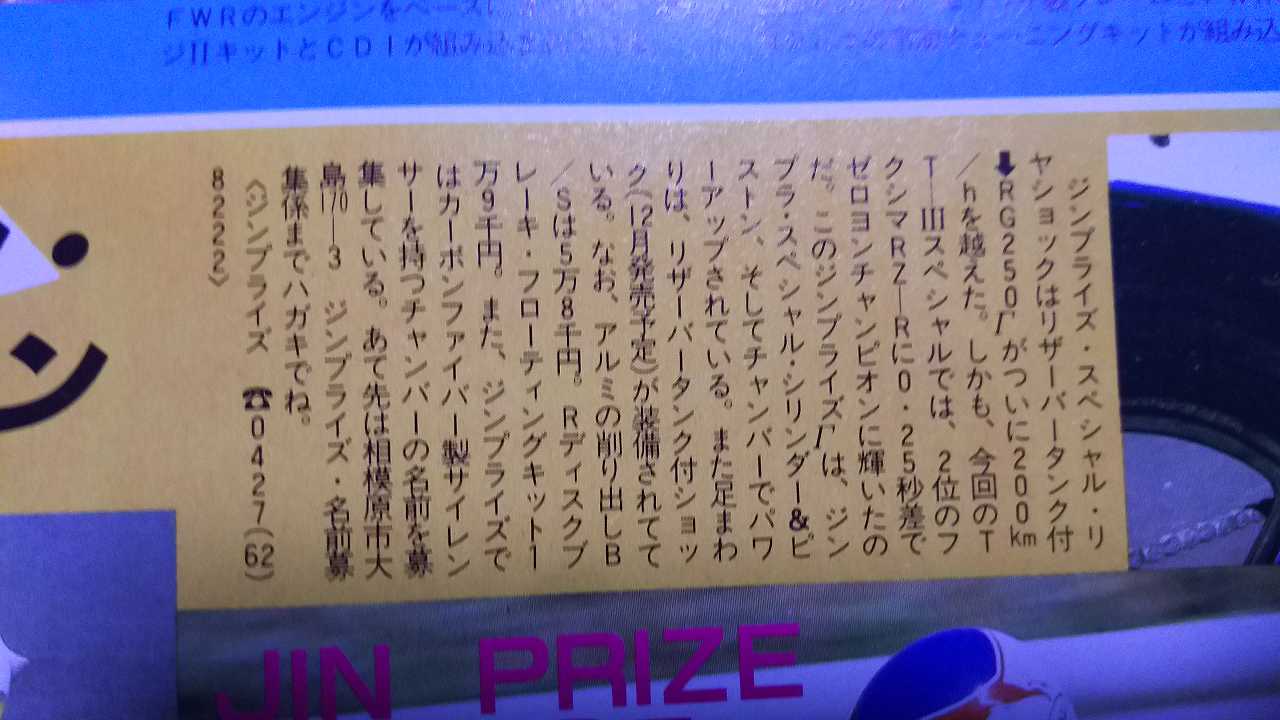 FWRのエンジンをベースに
ジIIキットとCDIが組み込ま
ニングキットが組み込
ジンプライズ・スペシャル・リ
ヤショックはリザーバータンク付
⬇RG250Γがついに200km
/hを越えた。しかも、今回のT
T―IIIスペシャルでは、2位のフ
クシマRZ―Rに0・25秒差で
ゼロヨンチャンピオンに輝いたの
だ。このジンプライズΓは、ジン
プラ・スペシャル・シリンダー&ピ
ストン、そしてチャンバーでパワ
ーアップされている。また足まわ
りは、リザーバータンク付ショッ
ク(12月発売予定)が装備されてて
いる。なお、アルミの削り出しB
/Sは5万8千円。Rディスクブ
レーキ・フローティングキット1
万9千円。また、ジンプライズで
はカーボンファイバー製サイレン
サーを持つチャンバーの名前を募
集している。あて先は相模原市大
島170―3 ジンプライズ・名前募
集係までハガキでね。
《ジンプライズ ☎0427(62)
8222》
JIN PRIZE